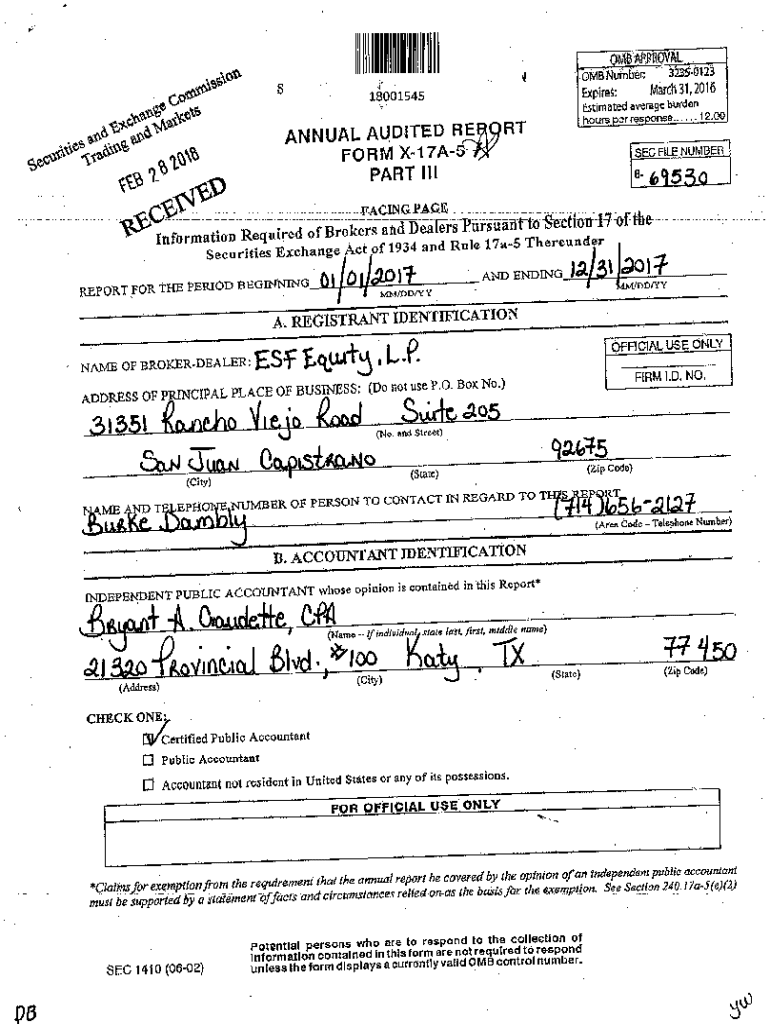 OMB APPROVAL
OMB Number: 3235-0123
Expires: March 31, 2016
Estimated average burden
hours per response...... 12.00
18001545
S
Securities and Exchange Commission
Trading and Markets
FEB 28 2018
RECEIVED
ANNUAL AUDITED REPORT
FORM X-17A-5
PART III
SEC FILE NUMBER
8- 69530
FACING PAGE
Information Required of Brokers and Dealers Pursuant to Section 17 of the
Securities Exchange Act of 1934 and Rule 17a-5 Thereunder
REPORT FOR THE PERIOD BEGINNING 01/01/2017 AND ENDING 12/31/2017
MM/DD/YY MM/DD/YY
A. REGISTRANT IDENTIFICATION
NAME OF BROKER-DEALER: ESF Equity, L.P.
OFFICIAL USE ONLY
FIRM I.D. NO.
ADDRESS OF PRINCIPAL PLACE OF BUSINESS: (Do not use P.O. Box No.)
31351 Rancho Viejo Road Suite 205
(No. and Street)
San Juan Capistrano 92675
(City) (State) (Zip Code)
NAME AND TELEPHONE NUMBER OF PERSON TO CONTACT IN REGARD TO THIS REPORT
Burke Dambly (714)656-2127
(Area Code – Telephone Number)
B. ACCOUNTANT IDENTIFICATION
INDEPENDENT PUBLIC ACCOUNTANT whose opinion is contained in this Report*
Bryant A. Gaudette, CPA
(Name – if individual, state last, first, middle name)
21320 Provincial Blvd., #100 Katy, TX 77450
(Address) (City) (State) (Zip Code)
CHECK ONE:
Certified Public Accountant
Public Accountant
Accountant not resident in United States or any of its possessions.
FOR OFFICIAL USE ONLY
*Claims for exemption from the requirement that the annual report be covered by the opinion of an independent public accountant
must be supported by a statement of facts and circumstances relied on as the basis for the exemption. See Section 240.17a-5(e)(2)
SEC 1410 (06-02)
Potential persons who are to respond to the collection of
information contained in this form are not required to respond
unless the form displays a currently valid OMB control number.
DB
yw